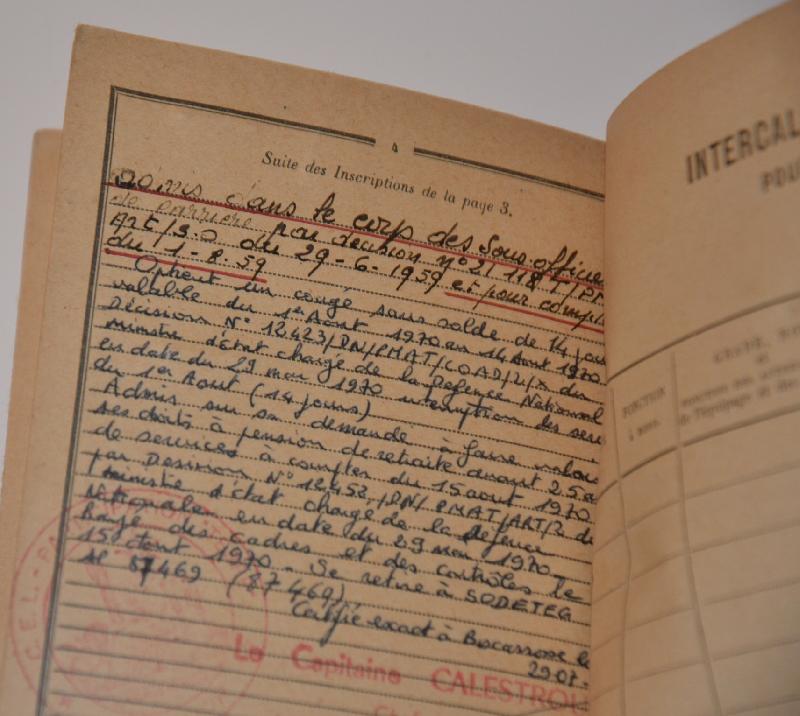 4
Suite des Inscriptions de la page 3.
Admis dans le corp des Sous-officie
de carriere par décision n° 21 118 T/PM
Art/3.0 du 29-6-1959 et pour compt
du 1-8-59
Optient un congé sans solde de 14 jour
valable du 1er Aout 1970 au 14 Aout 1970
Décision N° 12423/DN/PMAT/COAD/2/X du
Ministre d'état chargé de la Défence National
en date du 29 mai 1970 interuption des serv
du 1er Aout (14 jours)
Admis sur sa demande à faire valoir
ses droits à pension de retraite avant 25 a
de services à compter du 15 aout 1970
par Desision N° 12452/DN/PMAT/ART/2 du
Ministre d'état chargé de la Defence
Nationale en date du 29 mai 1970
Rayé des cadres et des contrôles le
15 aout 1970 - Se retire à SODETEG
N° 87469 (87469)
Certifié exact à Biscarrosse le
29.07.
Le Capitaine CALESTROU
C.E.L.
INTERCAL
POU
FONCTION
à bord.
GRADE, NO
et